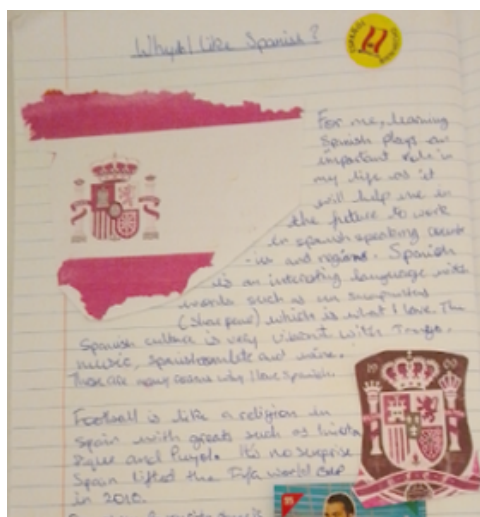 Why do I like Spanish?
For me, learning
Spanish plays an
important role in
my life as it
will help me in
the future to work
in spanish speaking countr
-ies and regions. Spanish
is an interesting language with
words such as un
(sharpener) which is what I love. The
Spanish culture is very vibrant with
music, and more.
These are many reasons why I love Spanish.
Football is like a religion in
Spain with greats such as Iniesta
Pique and Puyol. It's no surprise
Spain lifted the Fifa world cup
in 2010.